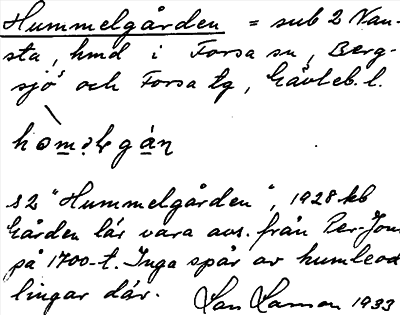 Hummelgården = sub 2 Nan-
sta, hmd i Forsa sn, Berg-
sjö och Forsa tg, Gävleb. l.
s2 "Hummelgården", 1928 kb
Gården lär vara avs. från Per-Jons
på 1700-t. Inga spår av humleod
lingar där.
Lars Larson 1933